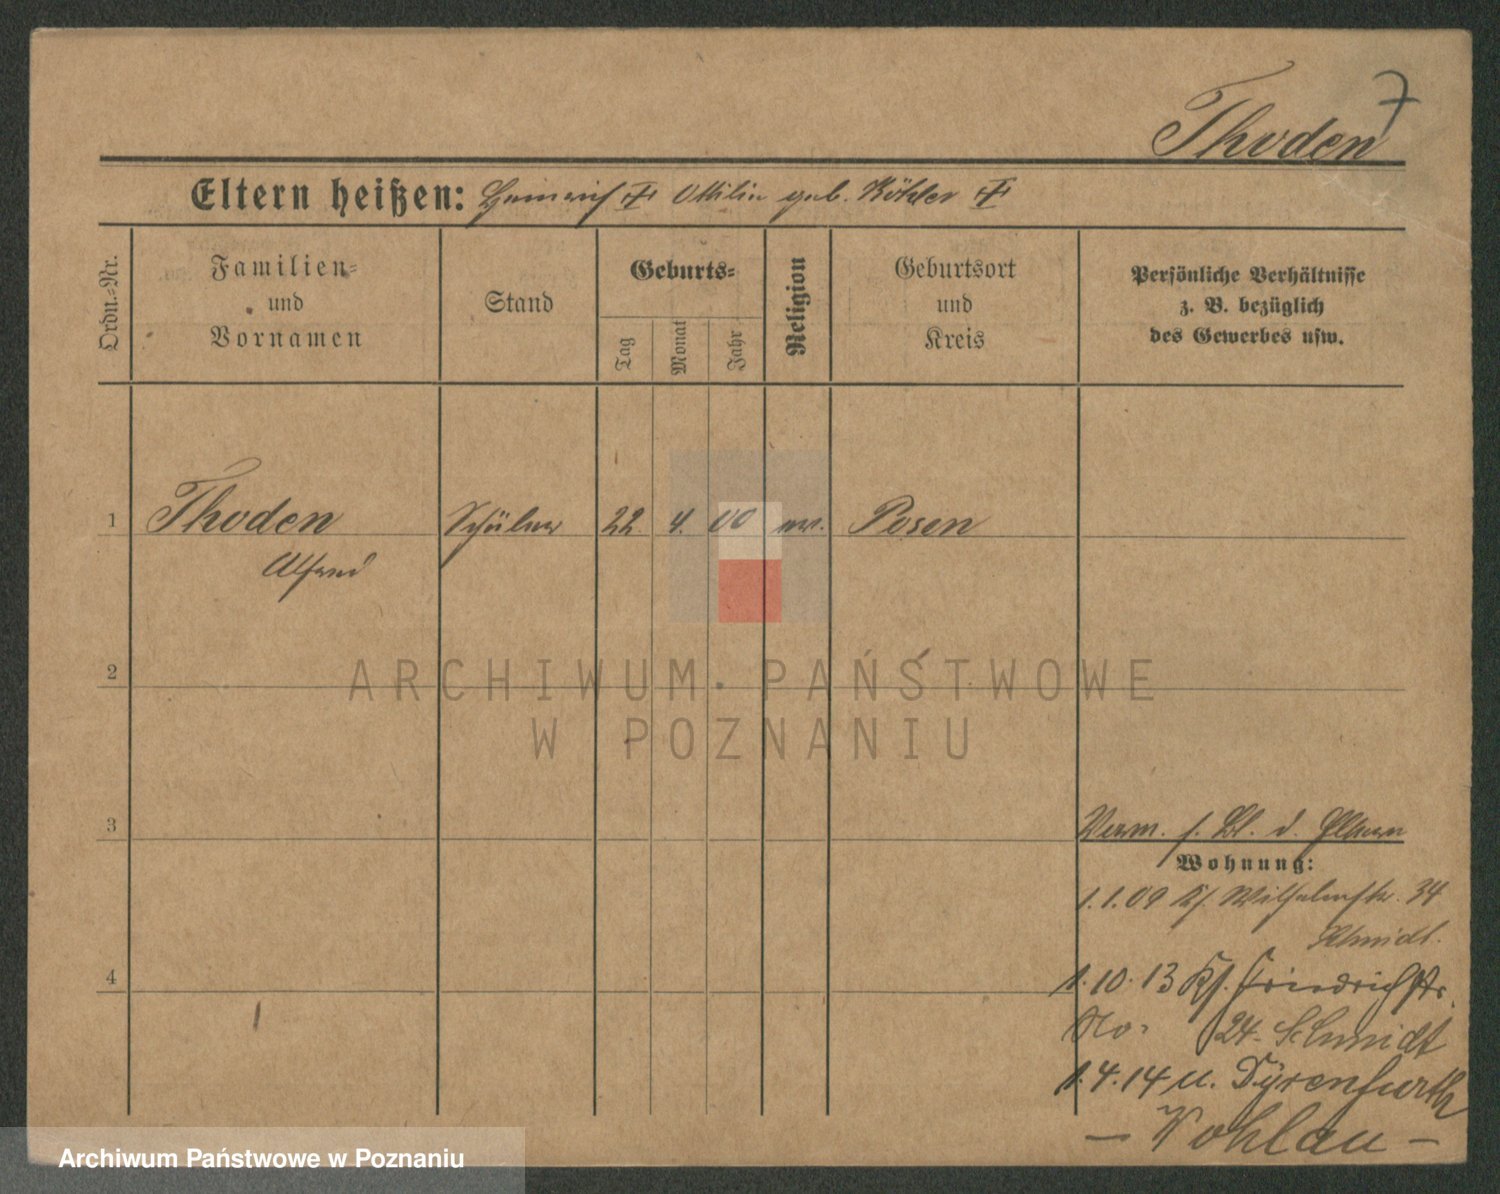 7
Thoden
Eltern heißen: Heinrich Ottilie geb. Köhler
Ordn.-Nr.
Familien-
und
Vornamen
Stand
Geburts-
Tag
Monat
Jahr
Religion
Geburtsort
und
Kreis
Persönliche Verhältnisse
z. B. bezüglich
des Gewerbes usw.
1 Thoden Schüler 22. 4. 00 ev. Posen
Alfred
2
ARCHIWUM PAŃSTWOWE
W POZNANIU
3
Verm. s. Bl. d. Eltern
Wohnung:
1.1.09 Wilhelmstr. 34
Schmidt.
4
1.10.13 Friedrichstr.
No. 24. Schmidt
1.4.14 u. Dyrenfurth
– Wohlau –
Archiwum Państwowe w Poznaniu